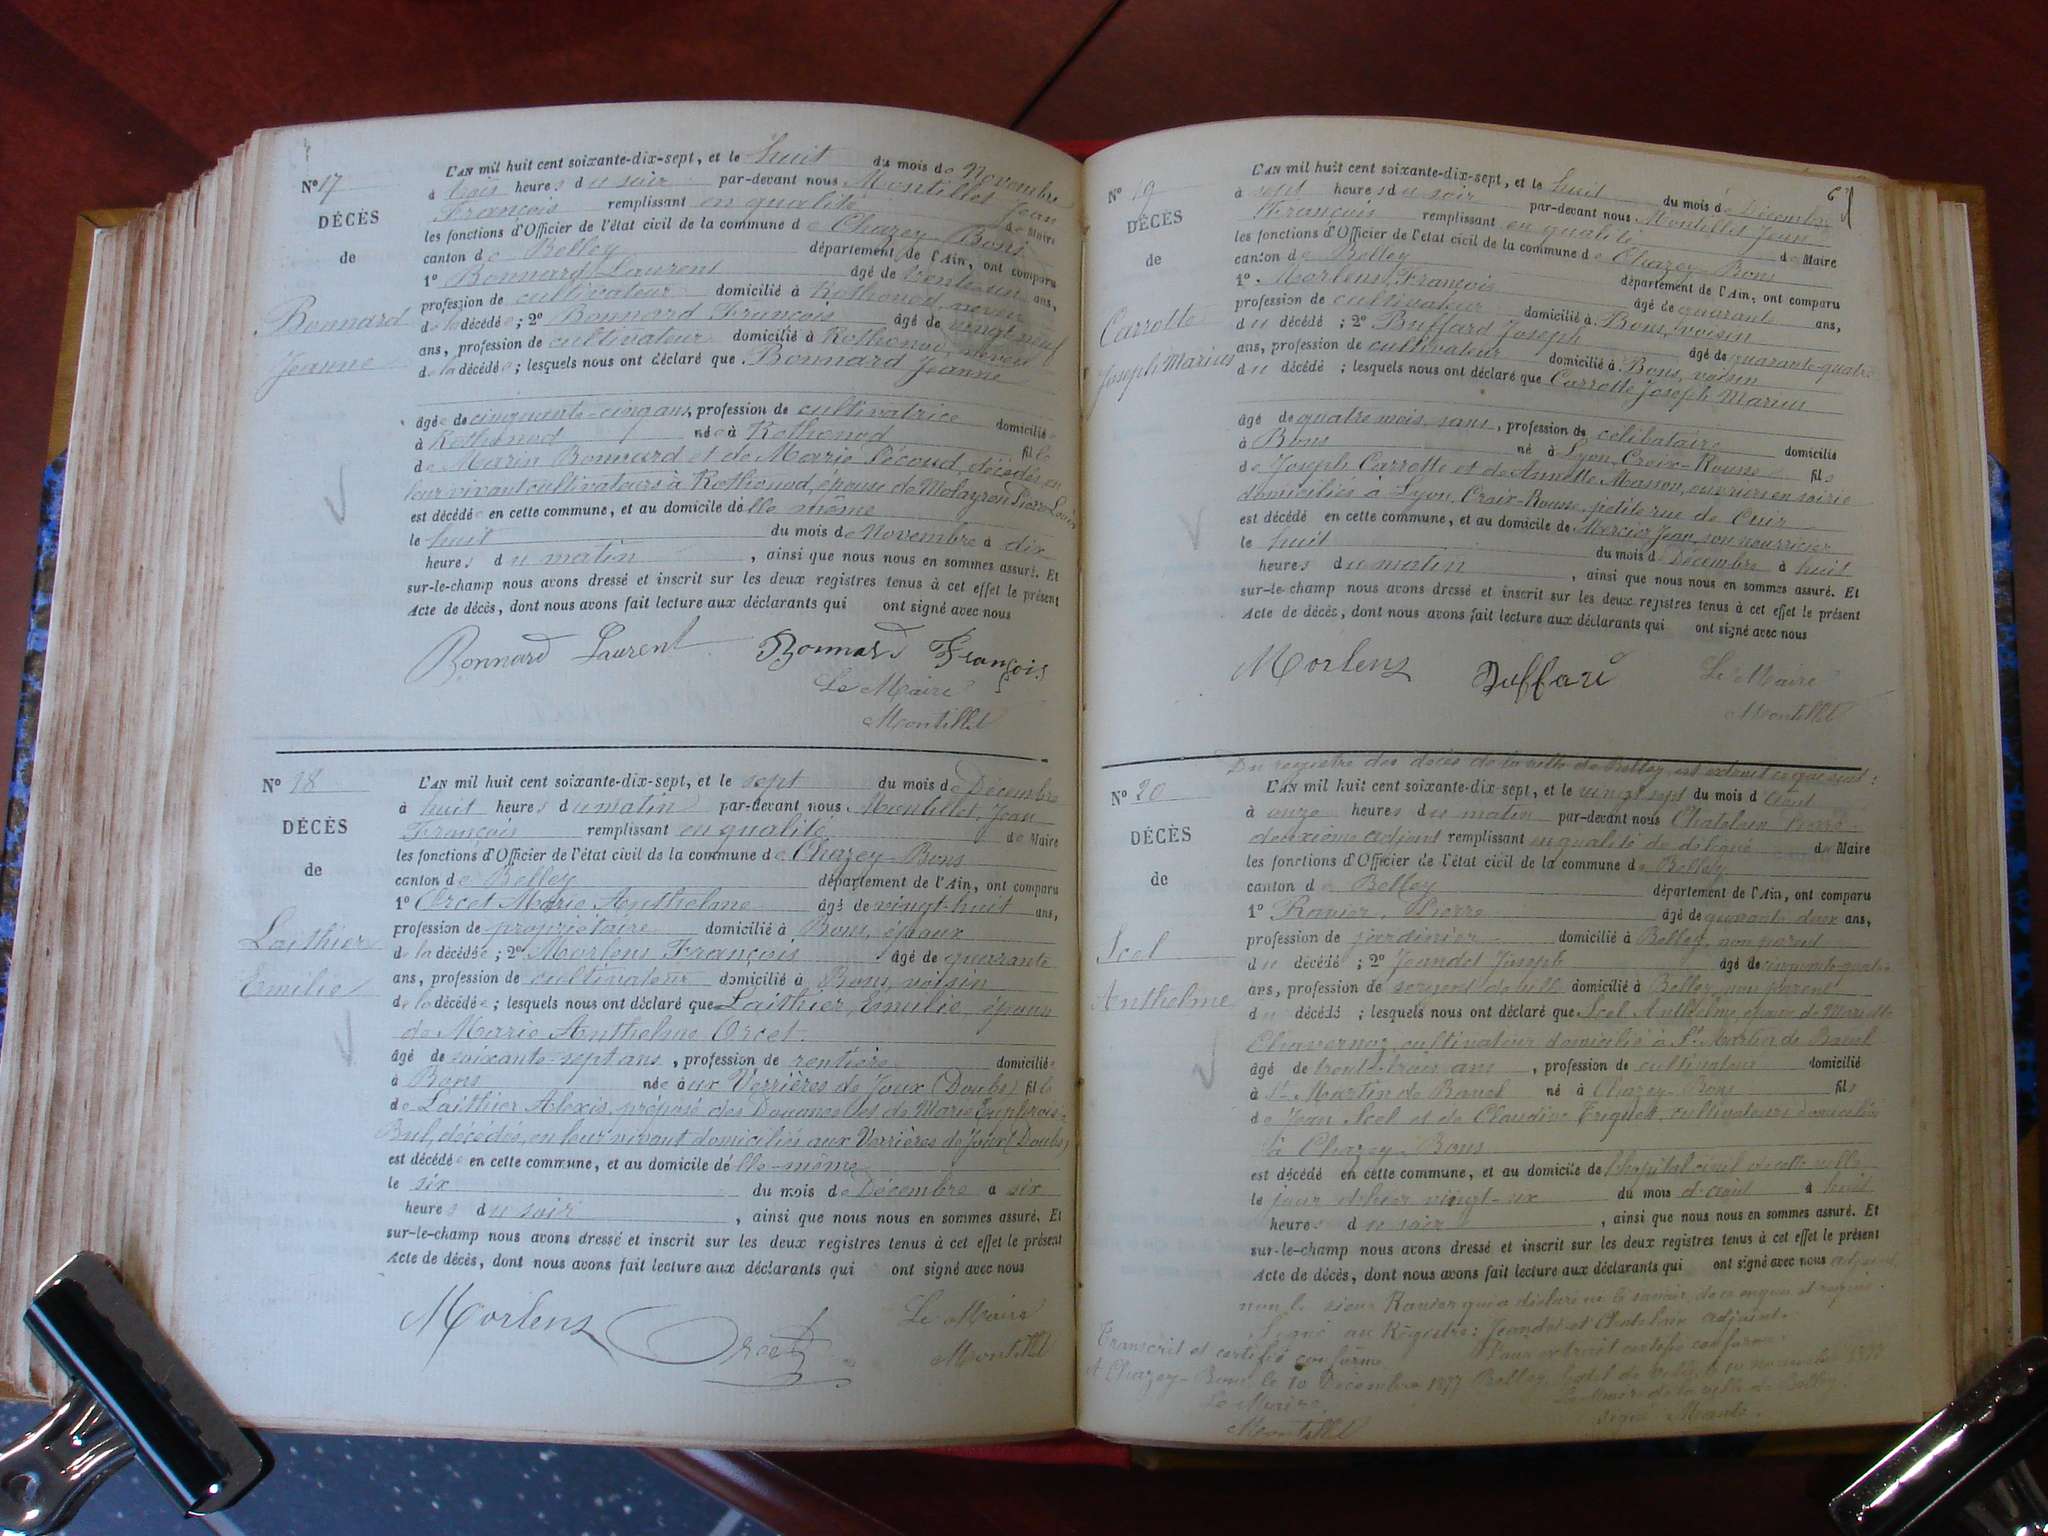 N° 17
DÉCÈS
de
Bonnard
Jeanne
L'AN mil huit cent soixante-dix-sept, et le huit du mois de Novembre
à trois heures du soir par-devant nous Montillet Jean
François remplissant en qualité de Maire
les fonctions d'Officier de l'état civil de la commune de Chazey-Bons
canton de Belley département de l'Ain, ont comparu
1° Bonnard Laurent âgé de trente-un ans,
profession de cultivateur domicilié à Rothonod, neveu
de la décédée ; 2° Bonnard François âgé de vingt neuf
ans, profession de cultivateur domicilié à Rothonod, neveu
de la décédée ; lesquels nous ont déclaré que Bonnard Jeanne
âgée de cinquante-cinq ans, profession de cultivatrice domiciliée
à Rothonod née à Rothonod fille
de Marin Bonnard et de Marie Sécoud, décédés en
leur vivant cultivateurs à Rothonod, épouse de Molayron Pierre Louis
est décédée en cette commune, et au domicile d'elle même
le huit du mois de Novembre à dix
heures du matin , ainsi que nous nous en sommes assuré. Et
sur-le-champ nous avons dressé et inscrit sur les deux registres tenus à cet effet le présent
Acte de décès, dont nous avons fait lecture aux déclarants qui ont signé avec nous
Bonnard Laurent Bonnard François
Le Maire
Montillet
N° 18
DÉCÈS
de
Laithier
Emilie
L'AN mil huit cent soixante-dix-sept, et le sept du mois de Décembre
à huit heures du matin par-devant nous Montillet, Jean
François remplissant en qualité de Maire
les fonctions d'Officier de l'état civil de la commune de Chazey-Bons
canton de Belley département de l'Ain, ont comparu
1° Orcet Marie Anthelme âgé de vingt-huit ans,
profession de propriétaire domicilié à Bons, époux
de la décédée ; 2° Morlens François âgé de quarante
ans, profession de cultivateur domicilié à Bons, voisin
de la décédée ; lesquels nous ont déclaré que Laithier, Emilie, épouse
de Marie Anthelme Orcet.
âgé de soixante-sept ans , profession de rentière domiciliée
à Bons née aux Verrières de Joux (Doubs) fille
de Laithier Alexis, préposé des Douanes et de Marie Euphrosie
Bul, décédés, en leur vivant domiciliés aux Verrières de Joux (Doubs)
est décédée en cette commune, et au domicile d'elle-même
le six du mois de Décembre à six
heures du soir , ainsi que nous nous en sommes assuré. Et
sur-le-champ nous avons dressé et inscrit sur les deux registres tenus à cet effet le présent
Acte de décès, dont nous avons fait lecture aux déclarants qui ont signé avec nous
Morlens Orcet
Le Maire
Montillet
N° 19
DÉCÈS
de
Carrotte
Joseph Marius
L'AN mil huit cent soixante-dix-sept, et le huit du mois de Décembre
à sept heures du soir par-devant nous Montillet Jean
François remplissant en qualité de Maire
les fonctions d'Officier de l'état civil de la commune de Chazey-Bons
canton de Belley département de l'Ain, ont comparu
1° Morlens François âgé de quarante ans,
profession de cultivateur domicilié à Bons, voisin
du décédé ; 2° Buffard Joseph âgé de quarante-quatre
ans, profession de cultivateur domicilié à Bons, voisin
du décédé ; lesquels nous ont déclaré que Carrotte Joseph Marius
âgé de quatre mois, sans, profession de célibataire domicilié
à Bons né à Lyon, Croix-Rousse fils
de Joseph Carrotte et de Annette Masson, ouvriers en soirie
domiciliés à Lyon, Croix-Rousse, petite rue de Cuir
est décédé en cette commune, et au domicile de Mercier Jean, son nourricier
le huit du mois de Décembre à huit
heures du matin , ainsi que nous nous en sommes assuré. Et
sur-le-champ nous avons dressé et inscrit sur les deux registres tenus à cet effet le présent
Acte de décès, dont nous avons fait lecture aux déclarants qui ont signé avec nous
Morlens Buffard
Le Maire
Montillet
Du registre des décès de la ville de Belley, est extrait ce qui suit :
N° 20
DÉCÈS
de
Scel
Anthelme
L'AN mil huit cent soixante-dix-sept, et le vingt sept du mois d'août
à onze heures du matin par-devant nous Chatelain Pierre
deuxième adjoint remplissant en qualité de délégué de Maire
les fonctions d'Officier de l'état civil de la commune de Belley
canton de Belley département de l'Ain, ont comparu
1° Ravier, Pierre âgé de quarante-deux ans,
profession de jardinier domicilié à Belley, non parent
du décédé ; 2° Jeandet Joseph âgé de cinquante-quatre
ans, profession de sergent de ville domicilié à Belley, non parent
du décédé ; lesquels nous ont déclaré que Scel Anthelme, époux de Mariette
Chavernoz, cultivateur domicilié à St Martin de Bavel
âgé de trente-trois ans , profession de cultivateur domicilié
à St-Martin de Bavel né à Chazey-Bons fils
de Jean Scel et de Claudine Triquet, cultivateurs domiciliés
à Chazey-Bons
est décédé en cette commune, et au domicile de l'hôpital civil de cette ville
le jour d'hier vingt-six du mois d'août à huit
heures du soir , ainsi que nous nous en sommes assuré. Et
sur-le-champ nous avons dressé et inscrit sur les deux registres tenus à cet effet le présent
Acte de décès, dont nous avons fait lecture aux déclarants qui ont signé avec nous adjoint,
non le sieur Ravier qui a déclaré ne le savoir, de ce enquis et requis.
Signé au Régistre: Jeandet et Chatelain adjoint.
Pour extrait certifié conforme:
Belley, hôtel de ville, le 10 novembre 1877
Le Maire de la ville de Belley.
Signé
Transcrit et certifié conforme
A Chazey-Bons le 10 Décembre 1877
Le Maire,
Montillet